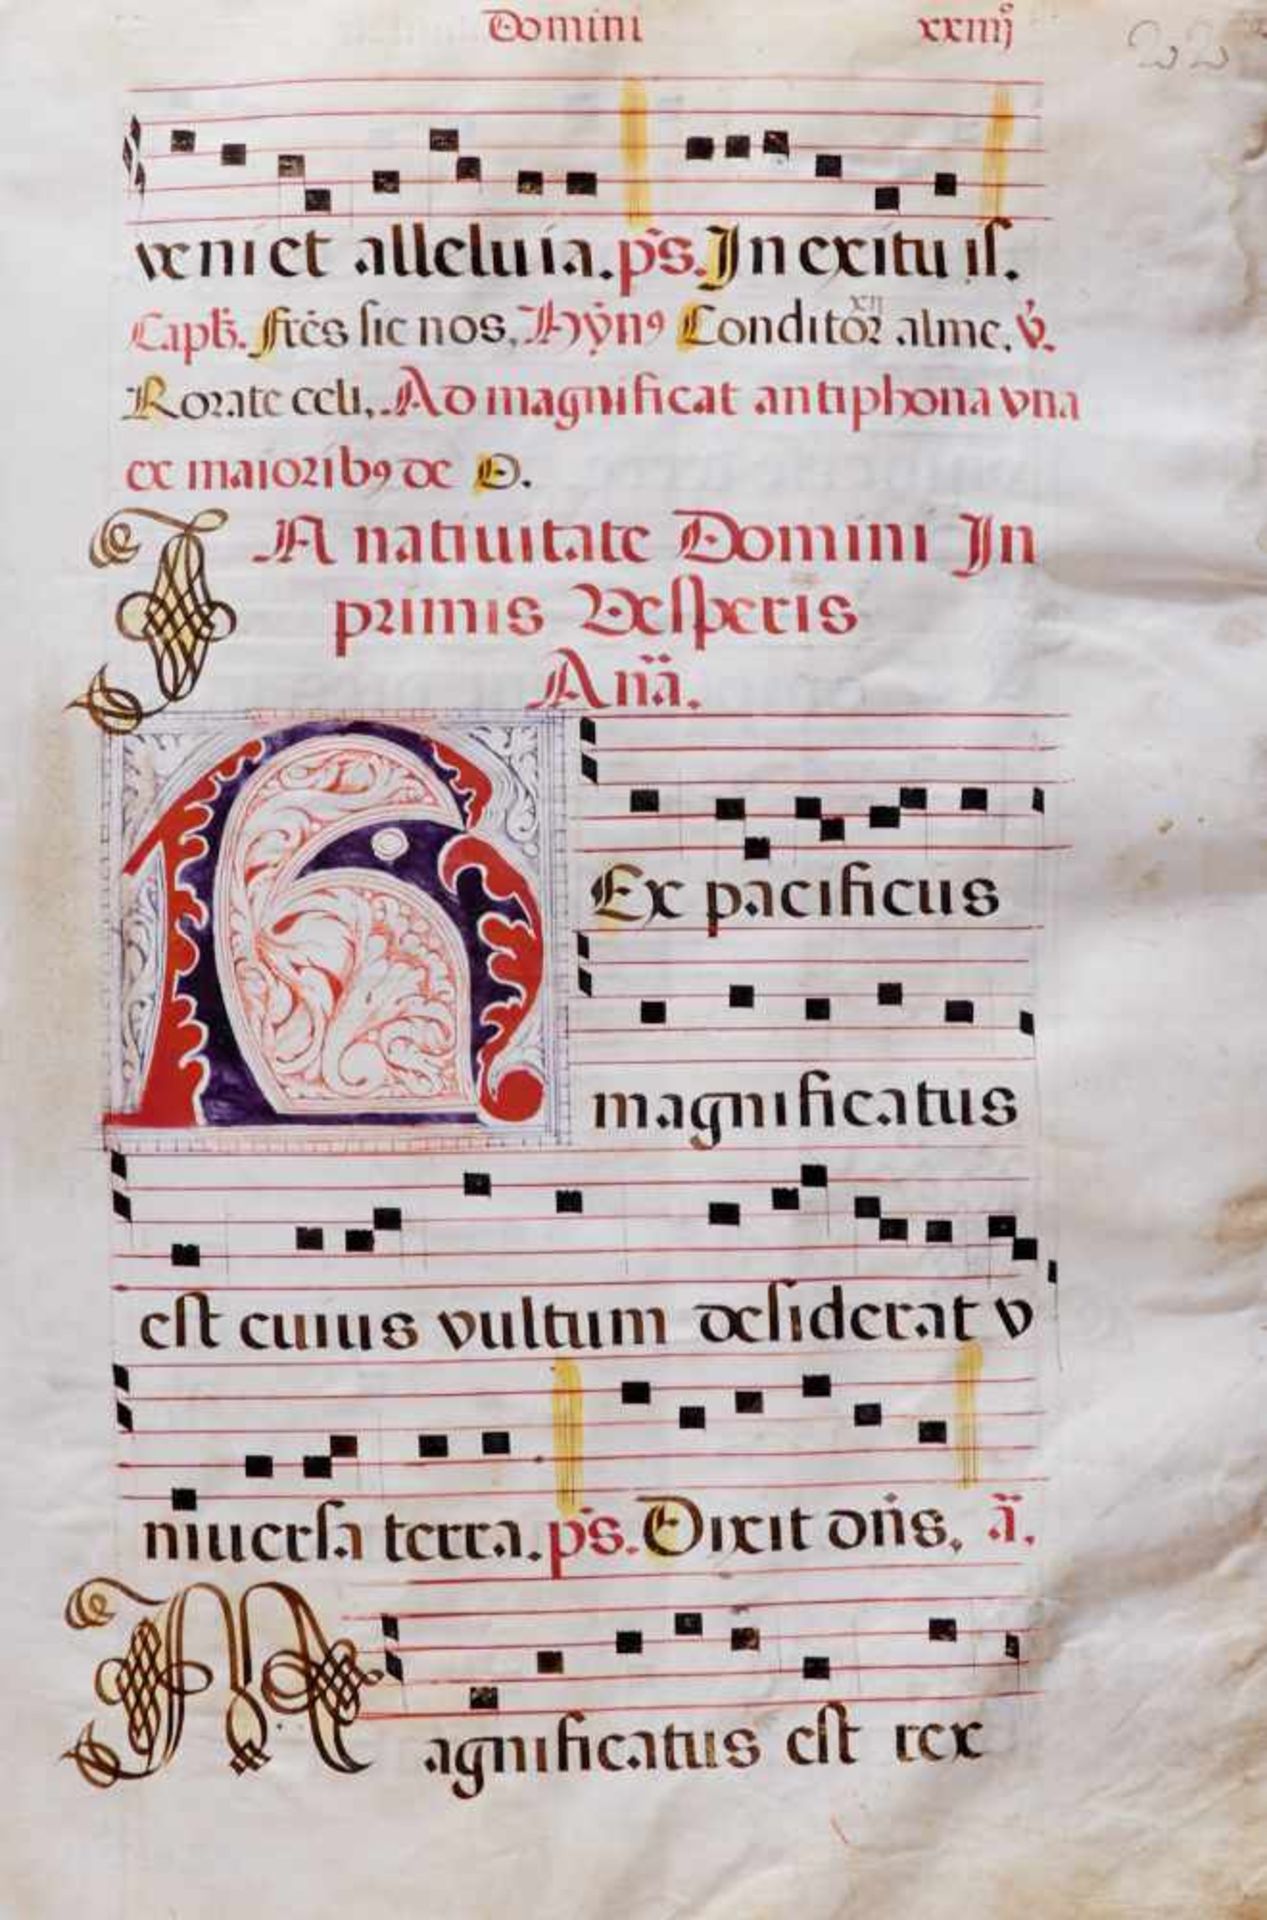 Domini xxiiij° 22
veniet alleluia. ps. In exitu isł.
Capłm. frēs sic nos, Hỹn9 Conditor xij alme. V̓.
Rorate celi, Ad magnificat antiphona vna
ex maiorib9 de O.
IN natiuitate Domini In
primis Vesperis
Anā.
REx pacificus
magnificatus
est cuius vultum desiderat v
niuersa terra. ps. Dixit dñs, ā.
Magnificatus est rex